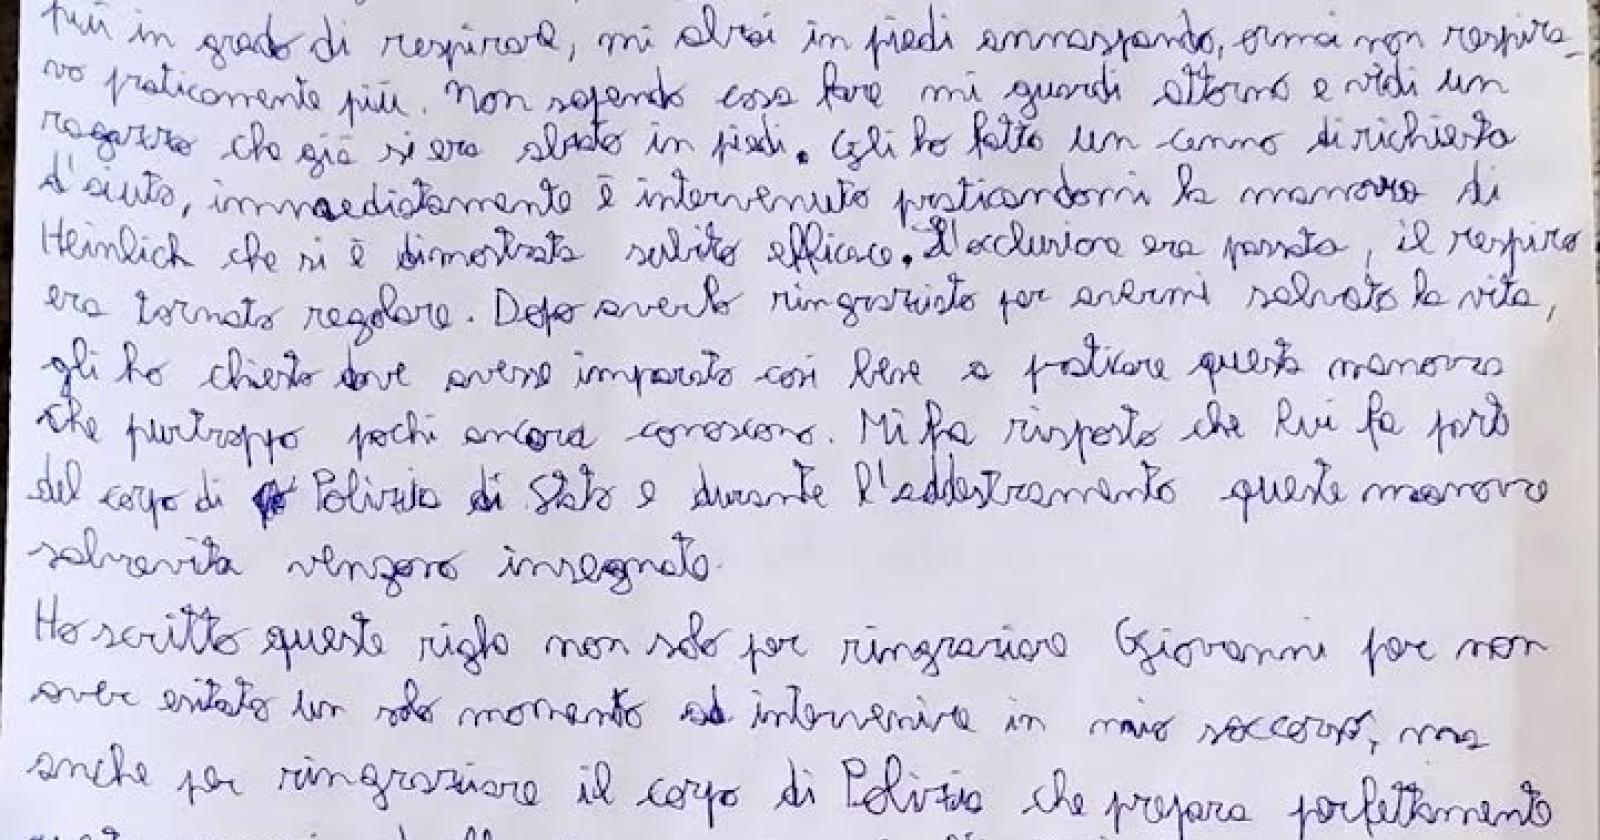 più in grado di respirare, mi alzai in piedi annaspando, ormai non respira-
vo praticamente più. Non sapendo cosa fare mi guardi attorno e vidi un
ragazzo che già si era alzato in piedi. Gli ho fatto un cenno di richiesta
d'aiuto, immediatamente è intervenuto praticandomi la manovra di
Heimlich che si è dimostrata subito efficace. L'occlusione era passata, il respiro
era tornato regolare. Dopo averlo ringraziato per avermi salvato la vita,
gli ho chiesto dove avesse imparato così bene a praticare questa manovra
che purtroppo pochi ancora conoscono. Mi ha risposto che lui fa parte
del corpo di Polizia di Stato e durante l'addestramento queste manovre
salvavita vengono insegnate.
Ho scritto queste righe non solo per ringraziare Giovanni per non
aver esitato un solo momento ad intervenire in mio soccorso, ma
anche per ringraziare il corpo di Polizia che prepara perfettamente